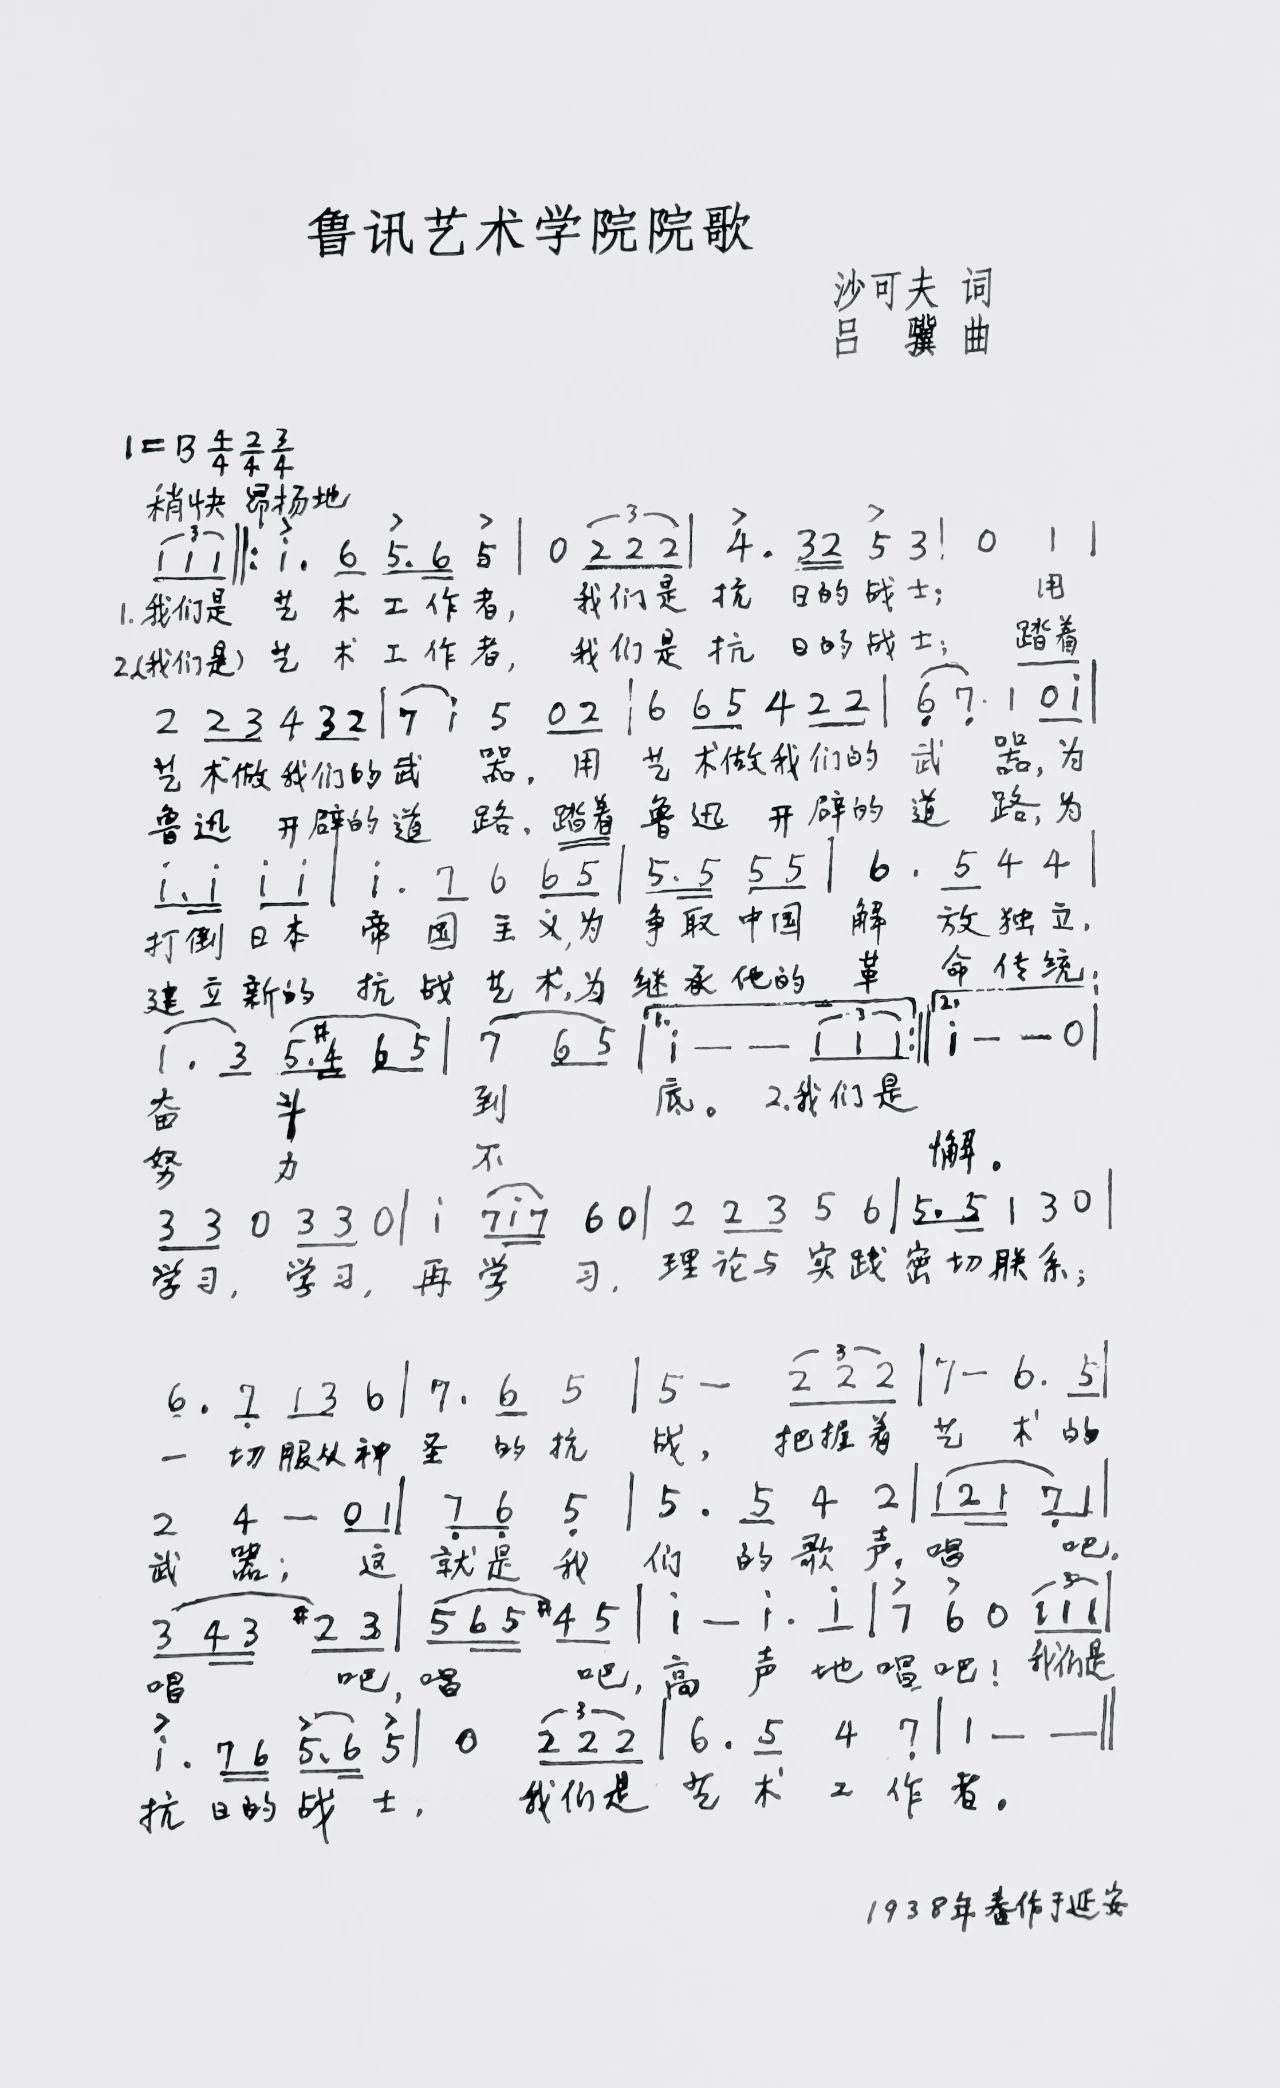 鲁讯艺术学院院歌
沙可夫 词
吕 骥 曲
1=B 4/4 2/4 3/4
稍快 昂扬地
1 1 1 ‖: i. 6 5.6 5 | 0 2 2 2 | 4. 32 5 3 | 0 1 |
1.我们是 艺术工作者, 我们是抗日的战士; 用
2.(我们是)艺术工作者, 我们是抗日的战士; 踏着
2 23 4 32 | 7 i 5 02 | 6 65 4 22 | 6 7. 1 0i |
艺术做我们的武器. 用艺术做我们的武器,为
鲁迅开辟的道路. 踏着鲁迅开辟的道路,为
i.i i i | i. 7 6 65 | 5.5 55 | 6. 5 4 4 |
打倒日本帝国主义,为争取中国解放独立.
建立新的抗战艺术,为继承他的革命传统;
1. 3 5.#4 65 | 7 65 | 1. i - - 1 1 1 :‖ 2. i - - 0 |
奋斗到底。 2.我们是
努力不 懈。
33 0 33 0 | i 7i7 60 | 2 23 5 6 | 5.5 1 3 0 |
学习, 学习, 再学习, 理论与实践密切联系;
6. 7 13 6 | 7. 6 5 | 5 - 2 2 2 | 7 - 6. 5 |
一切服从神圣的抗战, 把握着艺术的
2 4 - 01 | 7 6 5 | 5. 5 4 2 | 121 71 |
武器; 这就是我们的歌声. 唱吧.
3 43 #2 3 | 5 65 #4 5 | i - i. i | 7 6 0 1 1 1 |
唱吧,唱吧,高声地唱吧! 我们是
i. 76 5.6 5 | 0 2 2 2 | 6. 5 4 7 | 1 - - ‖
抗日的战士, 我们是艺术工作者。
1938年春作于延安